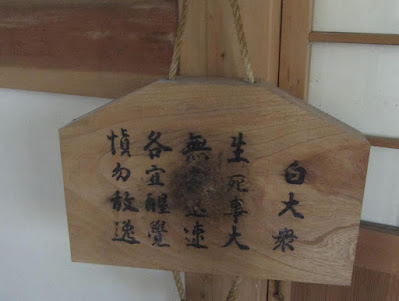 白大衆
生死事大
無迅速
各宜醒覺
慎勿放逸